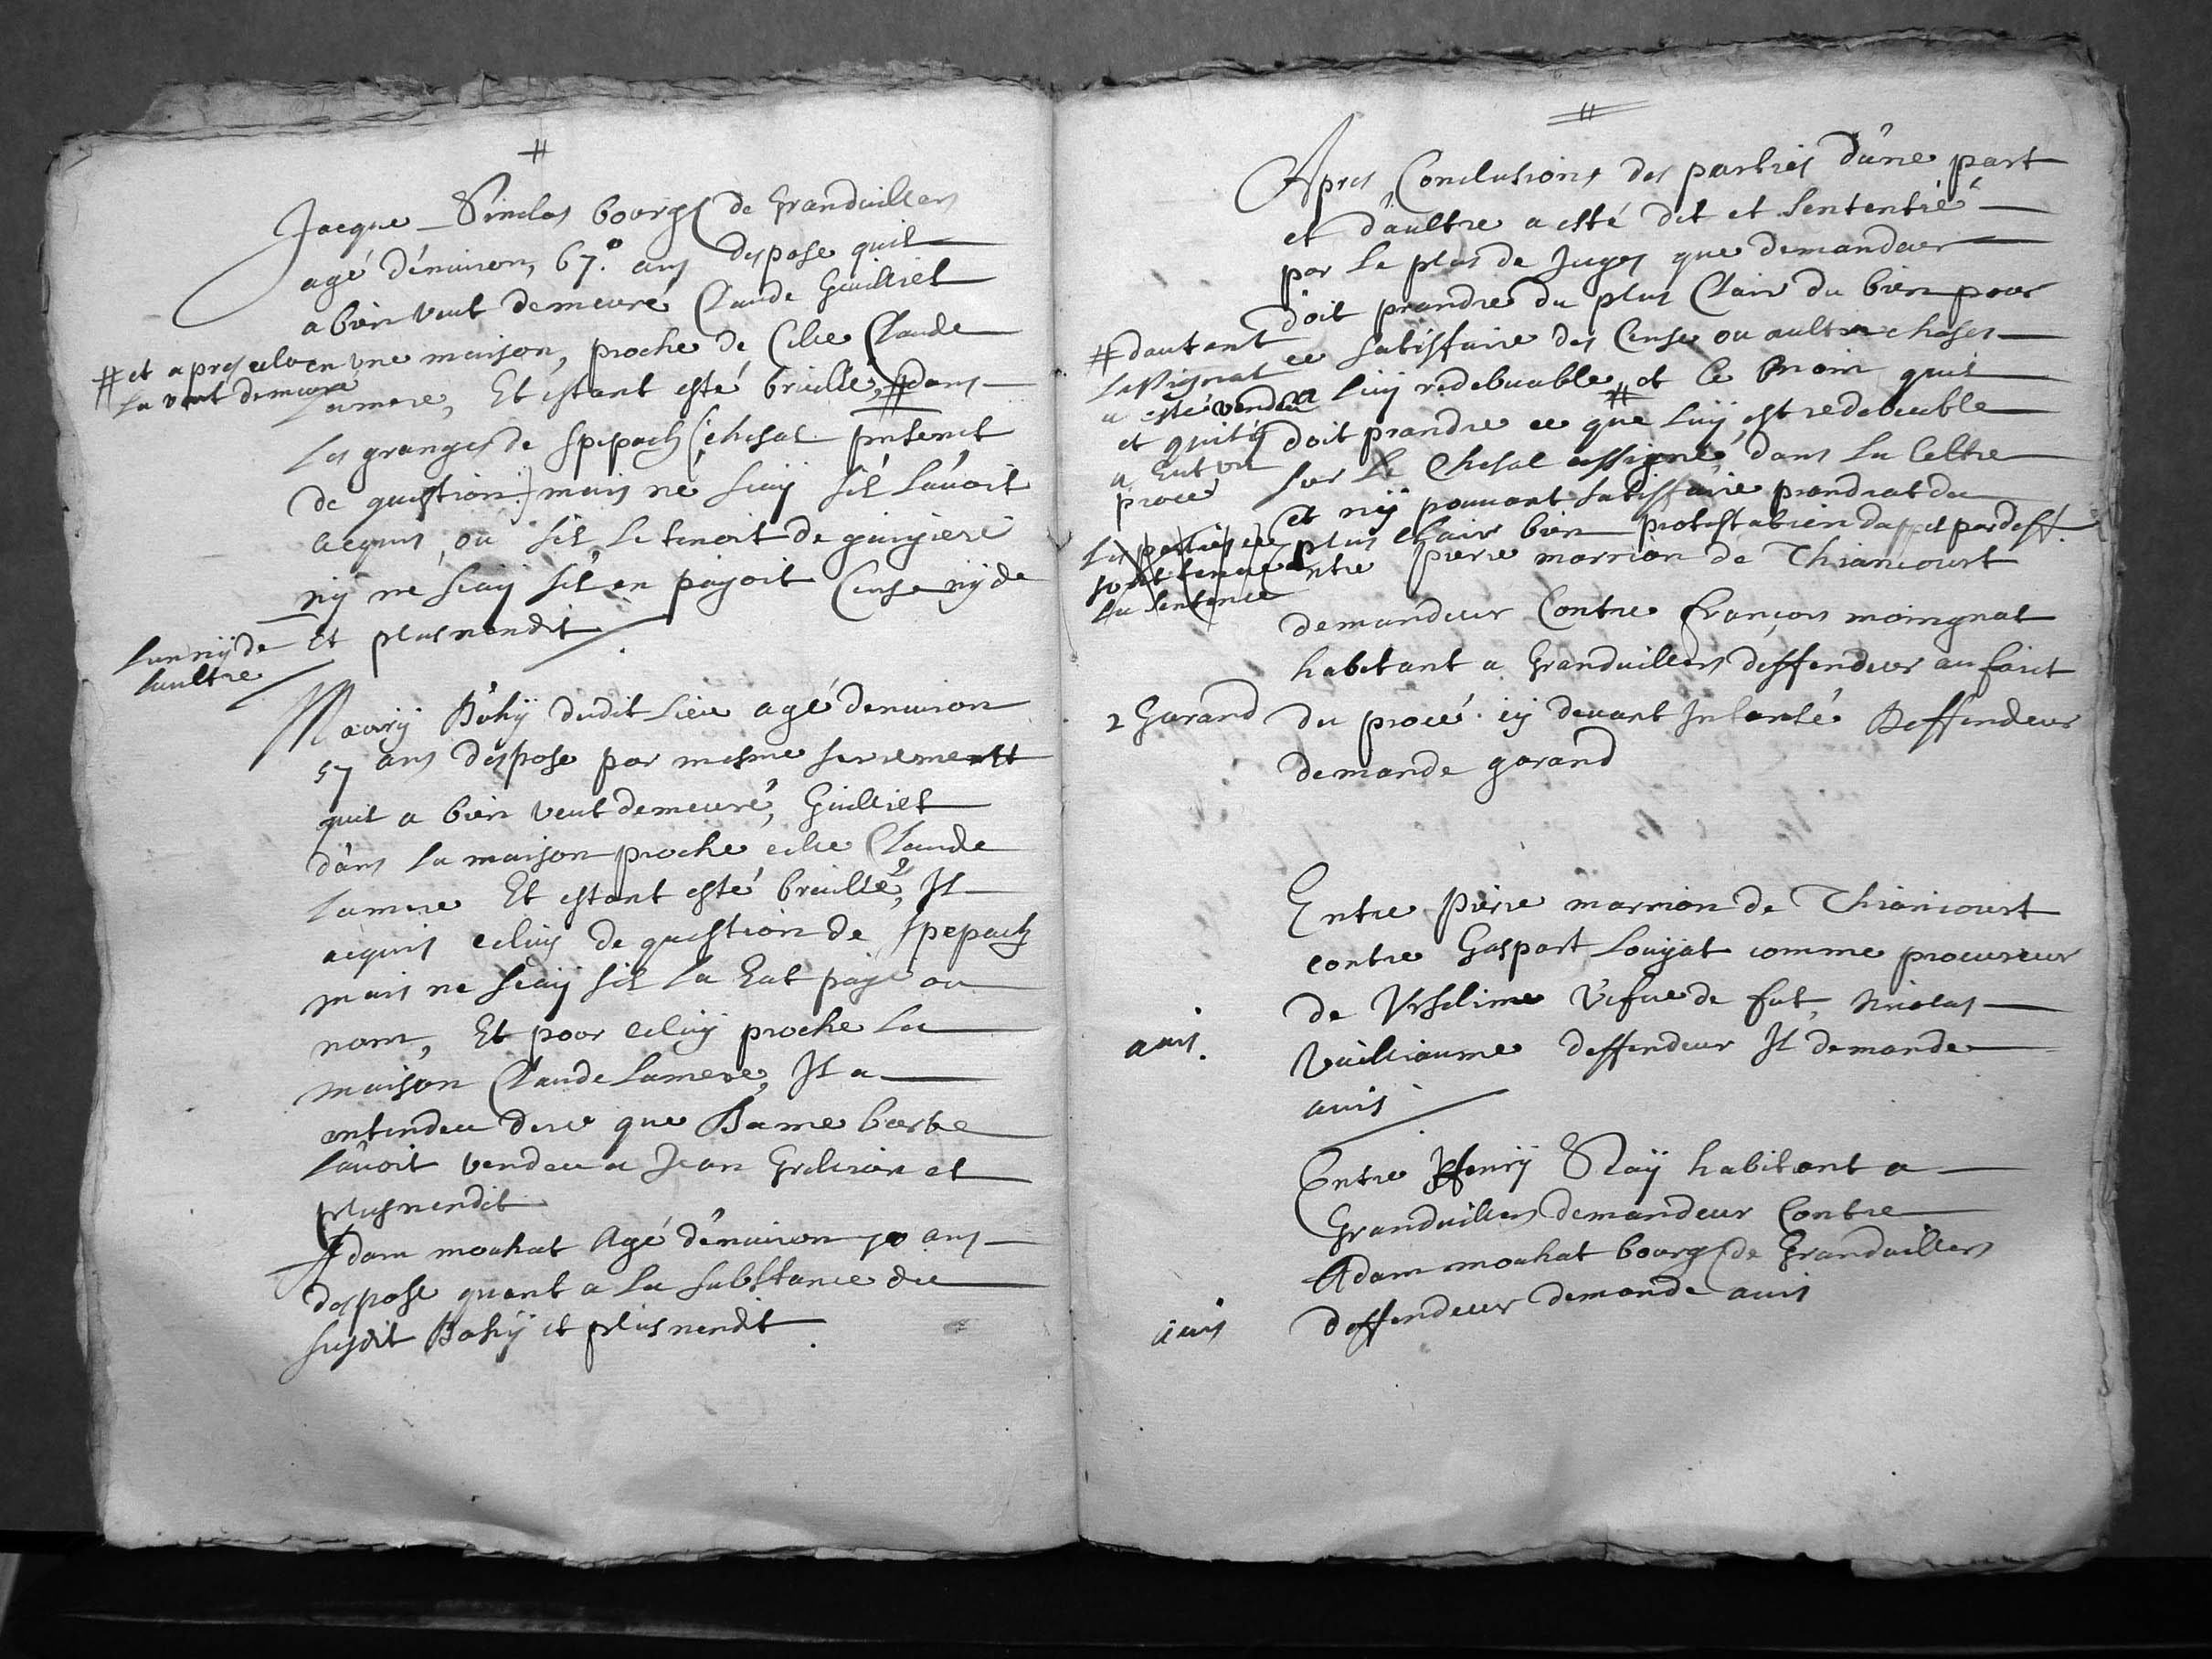 #
Jacque bourgs de Granduillers
agé dénuiron, 67.° ans depose quil
a bien veut demeuré Claude Guilliet
# et apres celo
la veut demeuré
en vne maison, proche de Celie Claude
Lamere, Et estant esté brullé, # dans
les granges de Spepach (chesal present
de question) mais ne scaÿ sil l'auoit
acquis, ou sil le tenoit de
nÿ ne scaÿ sil en paÿoit Cense nÿ de
lun nÿ de
laultre
et plus nendit
Maurÿ Bohÿ dudit lieu agé denuiron
57 ans depose par mesme serrement
quil a bien veut demeuré, Guilliet
dans la maison proche celie Claude
lamere Et estant esté brullé, Il
acquis celuÿ de question de Spepach
mais ne scaÿ sil la Eut paÿe ou
nom, Et pour celuÿ proche la
maison Claude Lamere, Il a
entendeu dire que Dame barbe
l'auoit vendeu a Jean et
plus nendit
Adam mouhat Agé dénuiron 70 ans
depose quant a la substance du
susdit Bohÿ et plus nendit
#
Apres Conclusions des parties dune part
et daultre a esté dit et sententié
par le plus de Juges que demandeur
doit prandre du plus Clair du bien pour
# dautant
lassignat
a esté vendeu
et quité
a Eut vn
procé
ce satisfaire des Cense ou aultre choses
luÿ redebuable, # et le moin quil
doit prandre ce que luÿ est redebuable
sur le Chesal assigné, dans la lettre
et nÿ pouuant satisfaire prandrat du
plus Clair bien protestabien dappel par deff.
les parties ce
sont tenue
la sentence
Entre pierre marrion de Thiancourt
demandeur Contre françois moingnat
habitant a Granduillers deffendeur au faict
2 Garand
du procé cÿ deuant Intanté Deffendeur
demande garand
Entre pierre marrion de Thiancourt
contre Gaspart Louÿat comme procureur
de Vrseline vefue de fut, Nicolas
auis.
Vuilliaume deffendeur Il demande
auis
Entre Henrÿ habitant a
Granduillers demandeur Contre
Adam mouhat bourgs de Granduillers
auis
deffendeur demande auis